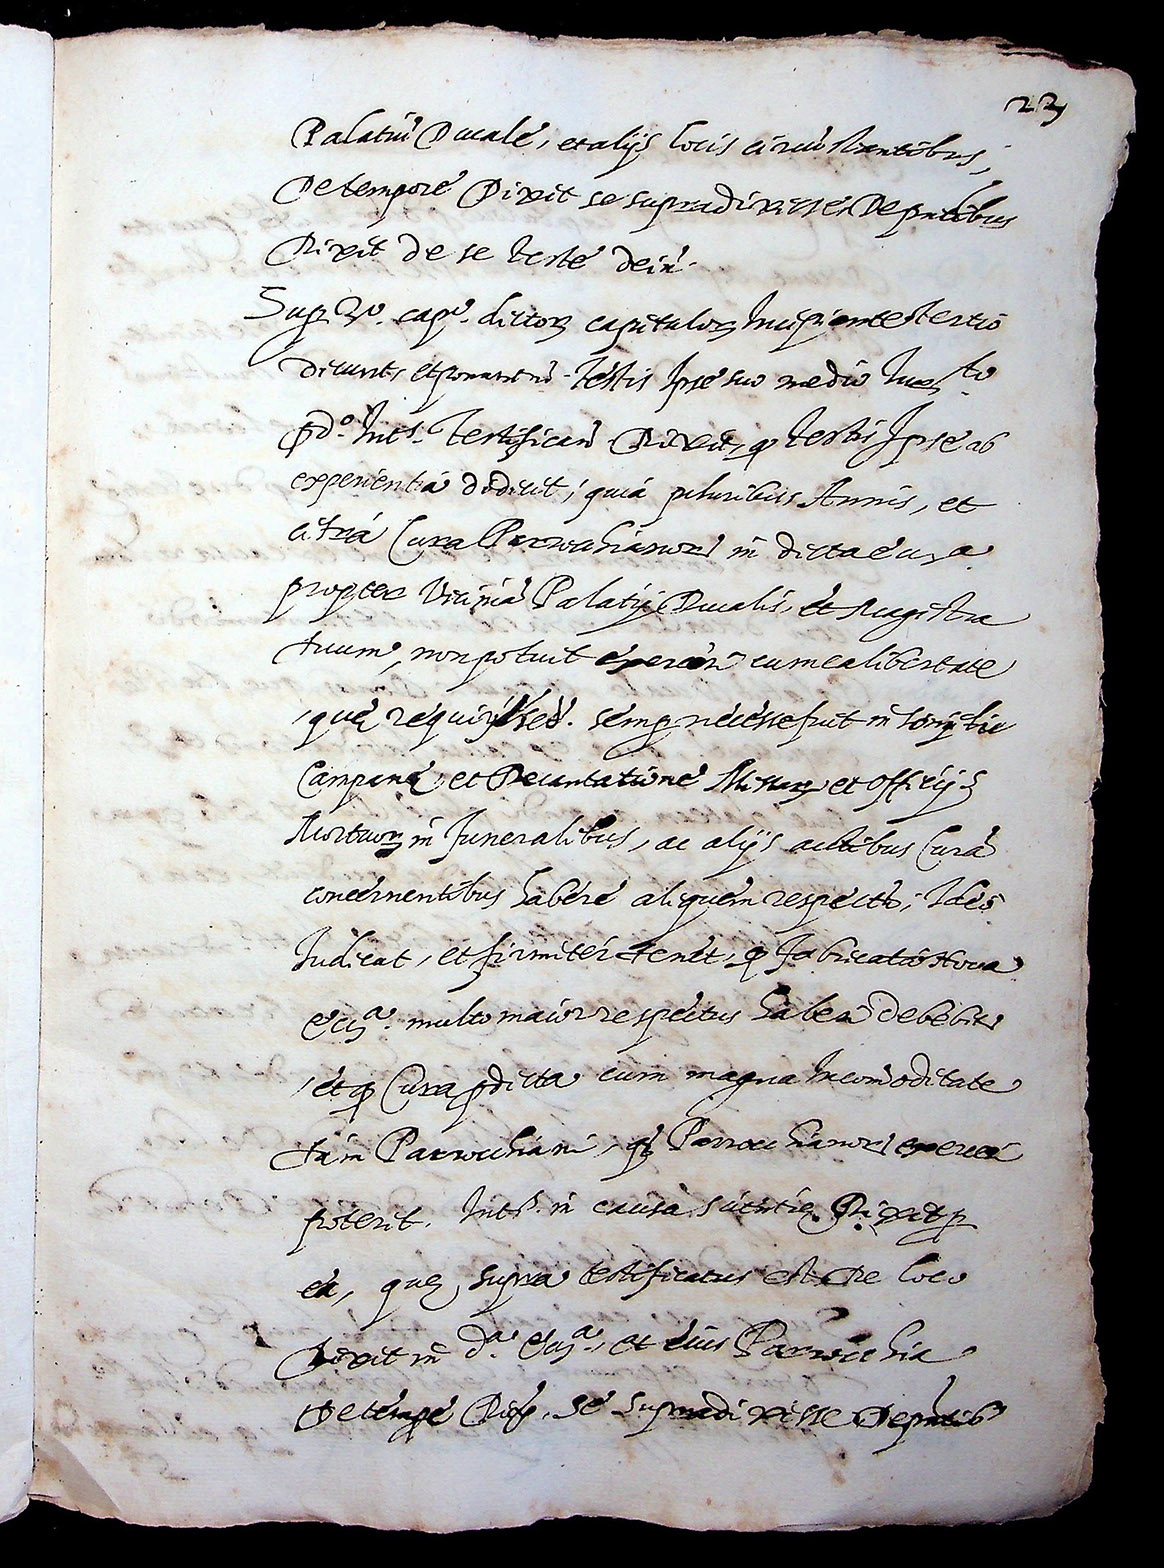 23
Palatiũ Ducale, et alijs locis circũstantibus,
De tempore Dixit se supradixisse, De pñtibus
Dixit de se teste dein̄.
Sup 3º. capº. dictor capitulor Incipiente tertio
dicunt, et ponunt - testis Ipse suo medio Iurto
pdº. Ints. testifican Dixit, q testis Ipse ab
experientia didicit, quia pluribus Annis, et
citra Cura Parrochianor in dicta ecca
propter viciniã Palatij Ducalis, et Magistra
tuum, non potuit exerceri cum ea libertate
que requirit sed. semp necesse fuit in sonitu
Campane, et Decantatione Missar, et officijs
Mortuor in funeralibus, ac alijs actibus Curã
concernentibus habere aliquem respectũ, Ideo
Iudicat, et firmiter tenet, q fabricatio Nova
Eccª. multo maior respectus haberi debebit
et q Cura pdicta cum magna Incomoditate
tam Parrochiani, q Parrochianor exerceri
poterit. Ints. in causa scientie Dixit p
ea, que supra testificatus est De loco
Dixit in dª. Eccª., et eius Parrochia
De tempe Dix, se supradixisse De pñtib